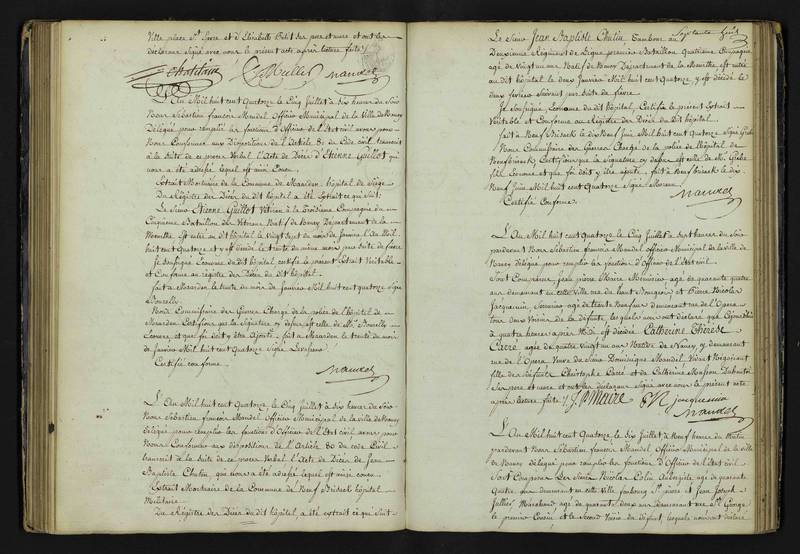 Ville place St. Epvre et d'Elisabeth Petit ses pere et mere et ont les
declarans Signé avec nous le présent acte après lecture faite
Mandel
L'An Mil huit cent Quatorze le Cinq Juillet à Six heures du Soir
Nous Sébastien françois Mandel Officier Municipal de la Ville de Nancy
Délégué pour remplir les fonctions d'Officier de l'Etat civil avons pour
Nous Conformer aux Dispositions de l'Article 80 du Code Civil transcrit
à la Suite de ce procès Verbal l'Acte de Décès d'Etienne Guillot qui
nous a été adressé lequel est ainsi Conçu
Extrait Mortuaire de la Commune de Naarden hôpital de Siège
Du Régistre des Décès du dit hôpital a été Extrait ce qui Suit:
Le Sieur Etienne Guillot Vétéran à la troisième Compagnie du
Cinquieme Bataillon des Vétérans Natif de Nancy Département de la
Meurthe Est entré au dit hôpital le Vingt Sept du mois de Janvier l'An Mil
huit cent Quatorze et y est décédé le trente du même mois par Suite de fievre
Je Soussigné Econome du dit hôpital certifie le présent Extrait Véritable
et Conforme au régistre des Décès du dit hôpital.
fait à Naarden le trente du mois de Janvier Mil huit cent quatorze Signé
Nous Commissaire des Guerres Chargé de la police de l'hôpital de
Naarden Certifions que la Signature ci dessus est celle de Mr.
Econome et que foi doit y être Ajoutée fait à Naarden le trente du mois
de Janvier Mil huit cent Quatorze Signé
Certifié conforme
Mandel
L'An Mil huit cent Quatorze, le Cinq Juillet à Six heures du Soir
Nous Sébastien françois Mandel Officier Municipal de la ville de Nancy
Délégué pour remplir les fonctions d'Officier de l'Etat Civil avons pour
Nous Conformer aux dispositions de l'Article 80 du Code Civil
transcrit à la Suite de ce procès Verbal l'Acte de Décès de Jean
Baptiste Chutin, qui nous a été adressé lequel est ainsi conçu
Extrait Mortuaire de la Commune de Neuf Brisack hôpital
Militaire
Du Régistre des Décès du dit hôpital, a été extrait ce qui Suit
Le Sieur Jean Baptiste Chutin Tambour au
Deuxieme Régiment de Ligne premier Bataillon Quatrieme Compagnie
agé de Vingt un ans Natif de Nancy Département de la Meurthe, est entré
au dit hôpital le deux Janvier Mil huit cent Quatorze, y est décédé le
deux février Suivant par Suite de fievre
Je Soussigné, Econome du dit hôpital, Certifie le présent Extrait
Véritable et Conforme au Régistre des Décès du dit hôpital.
fait à Neuf Brisack le dix Neuf Juin Mil huit cent Quatorze Signé
Nous Commissaire des Guerres Chargé de la police de l'hôpital de
Neufbrisack Certifions que la Signature cy dessus est celle de Mr.
Econome et que foi doit y être ajoutée fait à Neufbrisack le dix
Neuf Juin Mil huit cent Quatorze Signé
Certifié Conforme
Mandel
L'An Mil huit cent Quatorze, le Cinq Juillet à Sept heures du Soir
pardevant Nous Sébastien françois Mandel Officier Municipal de la ville de
Nancy délégué pour remplir les fonctions d'Officier de l'Etat civil
Sont Comparus Jean pierre Maire Menuisier agé de quarante quatre
ans demeurant en cette Ville rue du haut Bourgeois et Pierre Nicolas
Jacquemin, Serrurier agé de trente Neuf ans demeurant rue de l'Opera
tous deux Voisins de la défunte, lesquels nous ont déclaré que
à quatre heures après Midi est décédée Catherine Thérèse
Carré agée de quatre Vingt un ans Native de Nancy, y demeurant
rue de l'Opera Veuve du Sieur Dominique Mandel Vivant Négociant
fille de défunts Christophe Carré et de Catherine Masson
Ses pere et mere et ont les declarans Signé avec nous le présent acte
après lecture faite J. P. Maire P N Jacquemin
Mandel
L'An Mil huit cent Quatorze, le Six Juillet à Neuf heures du Matin
pardevant Nous Sébastien françois Mandel Officier Municipal de la ville
de Nancy délégué pour remplir les fonctions d'Officier de l'Etat civil
Sont Comparus les Sieurs Nicolas Colin Aubergiste agé de quarante
Quatre ans demeurant en cette Ville faubourg St. pierre et Jean Joseph
Marchand, agé de quarante deux ans demeurant rue St. George
le premier Cousin et le Second Voisin du défunt, lesquels nous ont déclaré